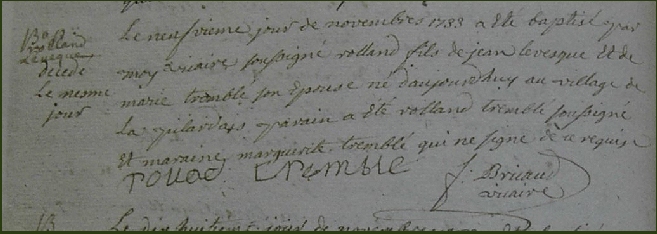 B. Rolland
Levesque
décédé
Le mesme
jour
Le neufvieme jour de novembre 1788 a été baptisé par
moy vicaire soussigné rolland fils de jean levesque et de
marie tremblé son Epouse né daujourdhuy au village de
La pilardais parain a été rolland tremblé soussigné
et maraine marguerite tremblé qui ne signe de ce requise
rolland tremble
j. Briand
vicaire
Le dix huitieme jour de novembre